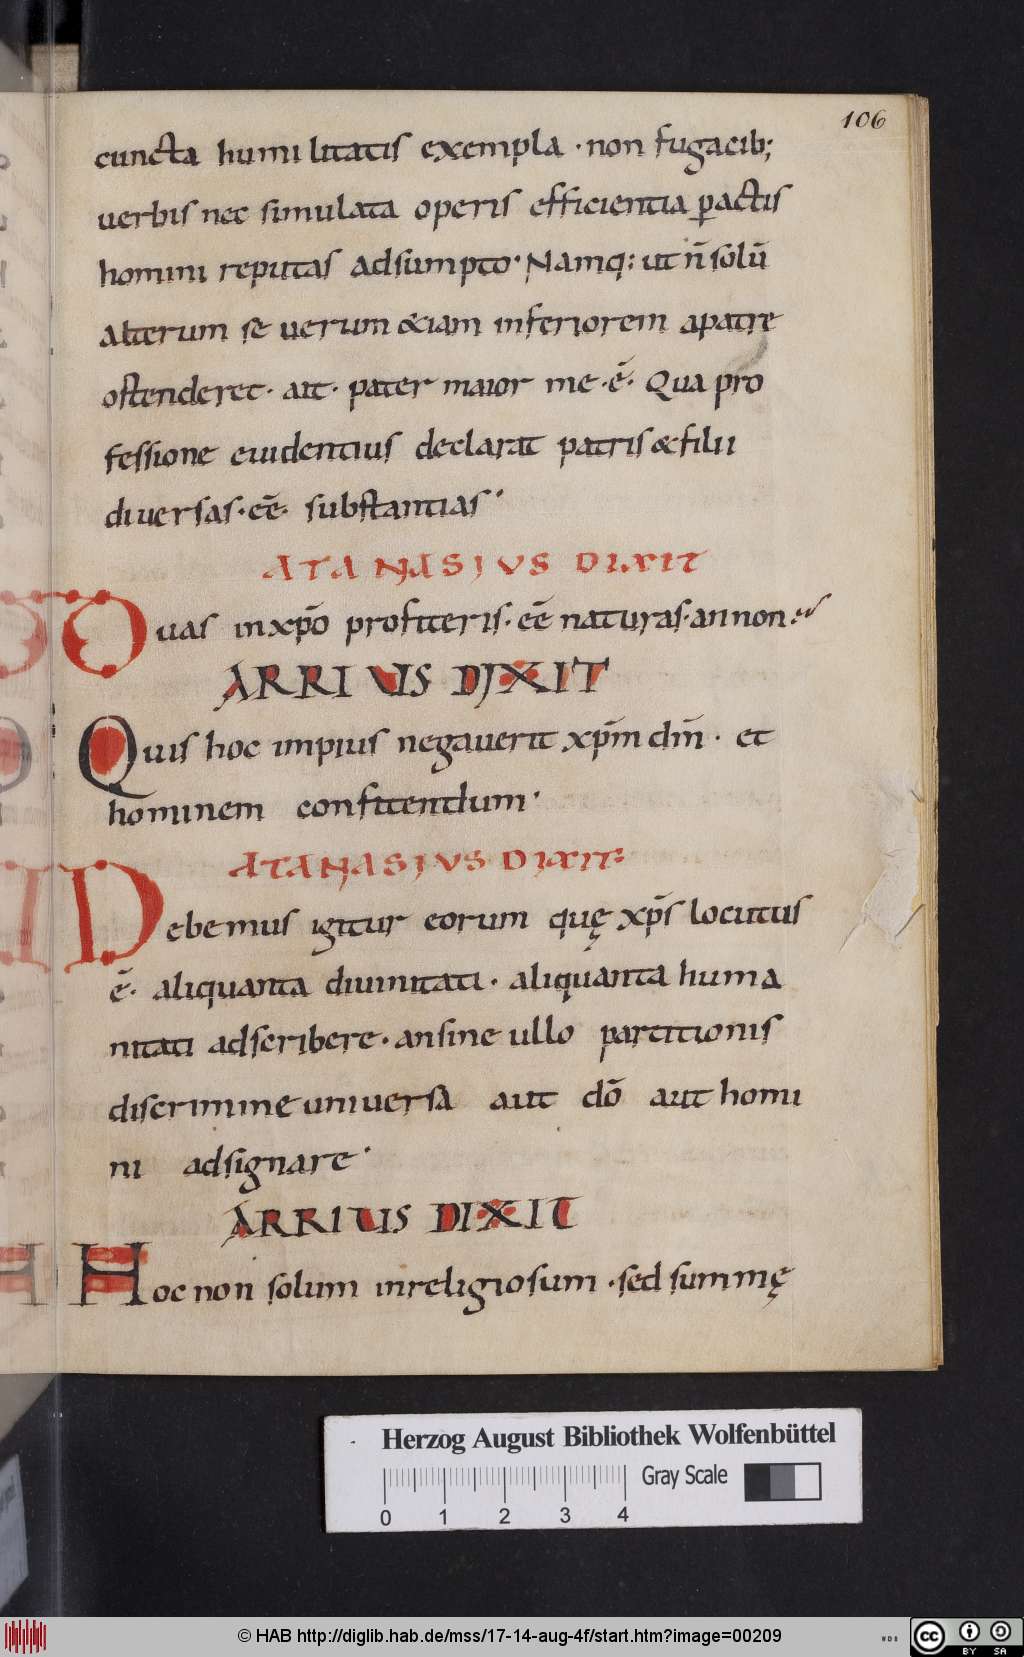 106
cuncta humilitatis exempla · non fugacib;
uerbis nec simulata operis efficientia ꝑactis
homini reputas adsumpto · Namq: ut n̄ solū
alterum se uerum &iam inferiorem apatre
ostenderet · ait · pater maior me · ē · Qua pro
fessione euidentius declarat patris & filii
diuersas · eē · substantias ·
ATANASIUS DIXIT
Duas inxp̄o profiteris · eē naturas · an non
ARRIUS DIXIT
Quis hoc impius negauerit xp̄m dm̄ · et
hominem confitendum ·
ATANASIUS DIXIT
Debemus igitur eorum quę xp̄s locutus
ē · aliquanta diuinitati · aliquanta huma
nitati adscribere · ansine ullo partitionis
discrimine uniuersa aut dō aut homi
ni adsignare ·
ARRIUS DIXIT
Hoc non solum inreligiosum · sed summę
Herzog August Bibliothek Wolfenbüttel
Gray Scale
0 1 2 3 4
© HAB http://diglib.hab.de/mss/17-14-aug-4f/start.htm?image=00209
cc BY SA